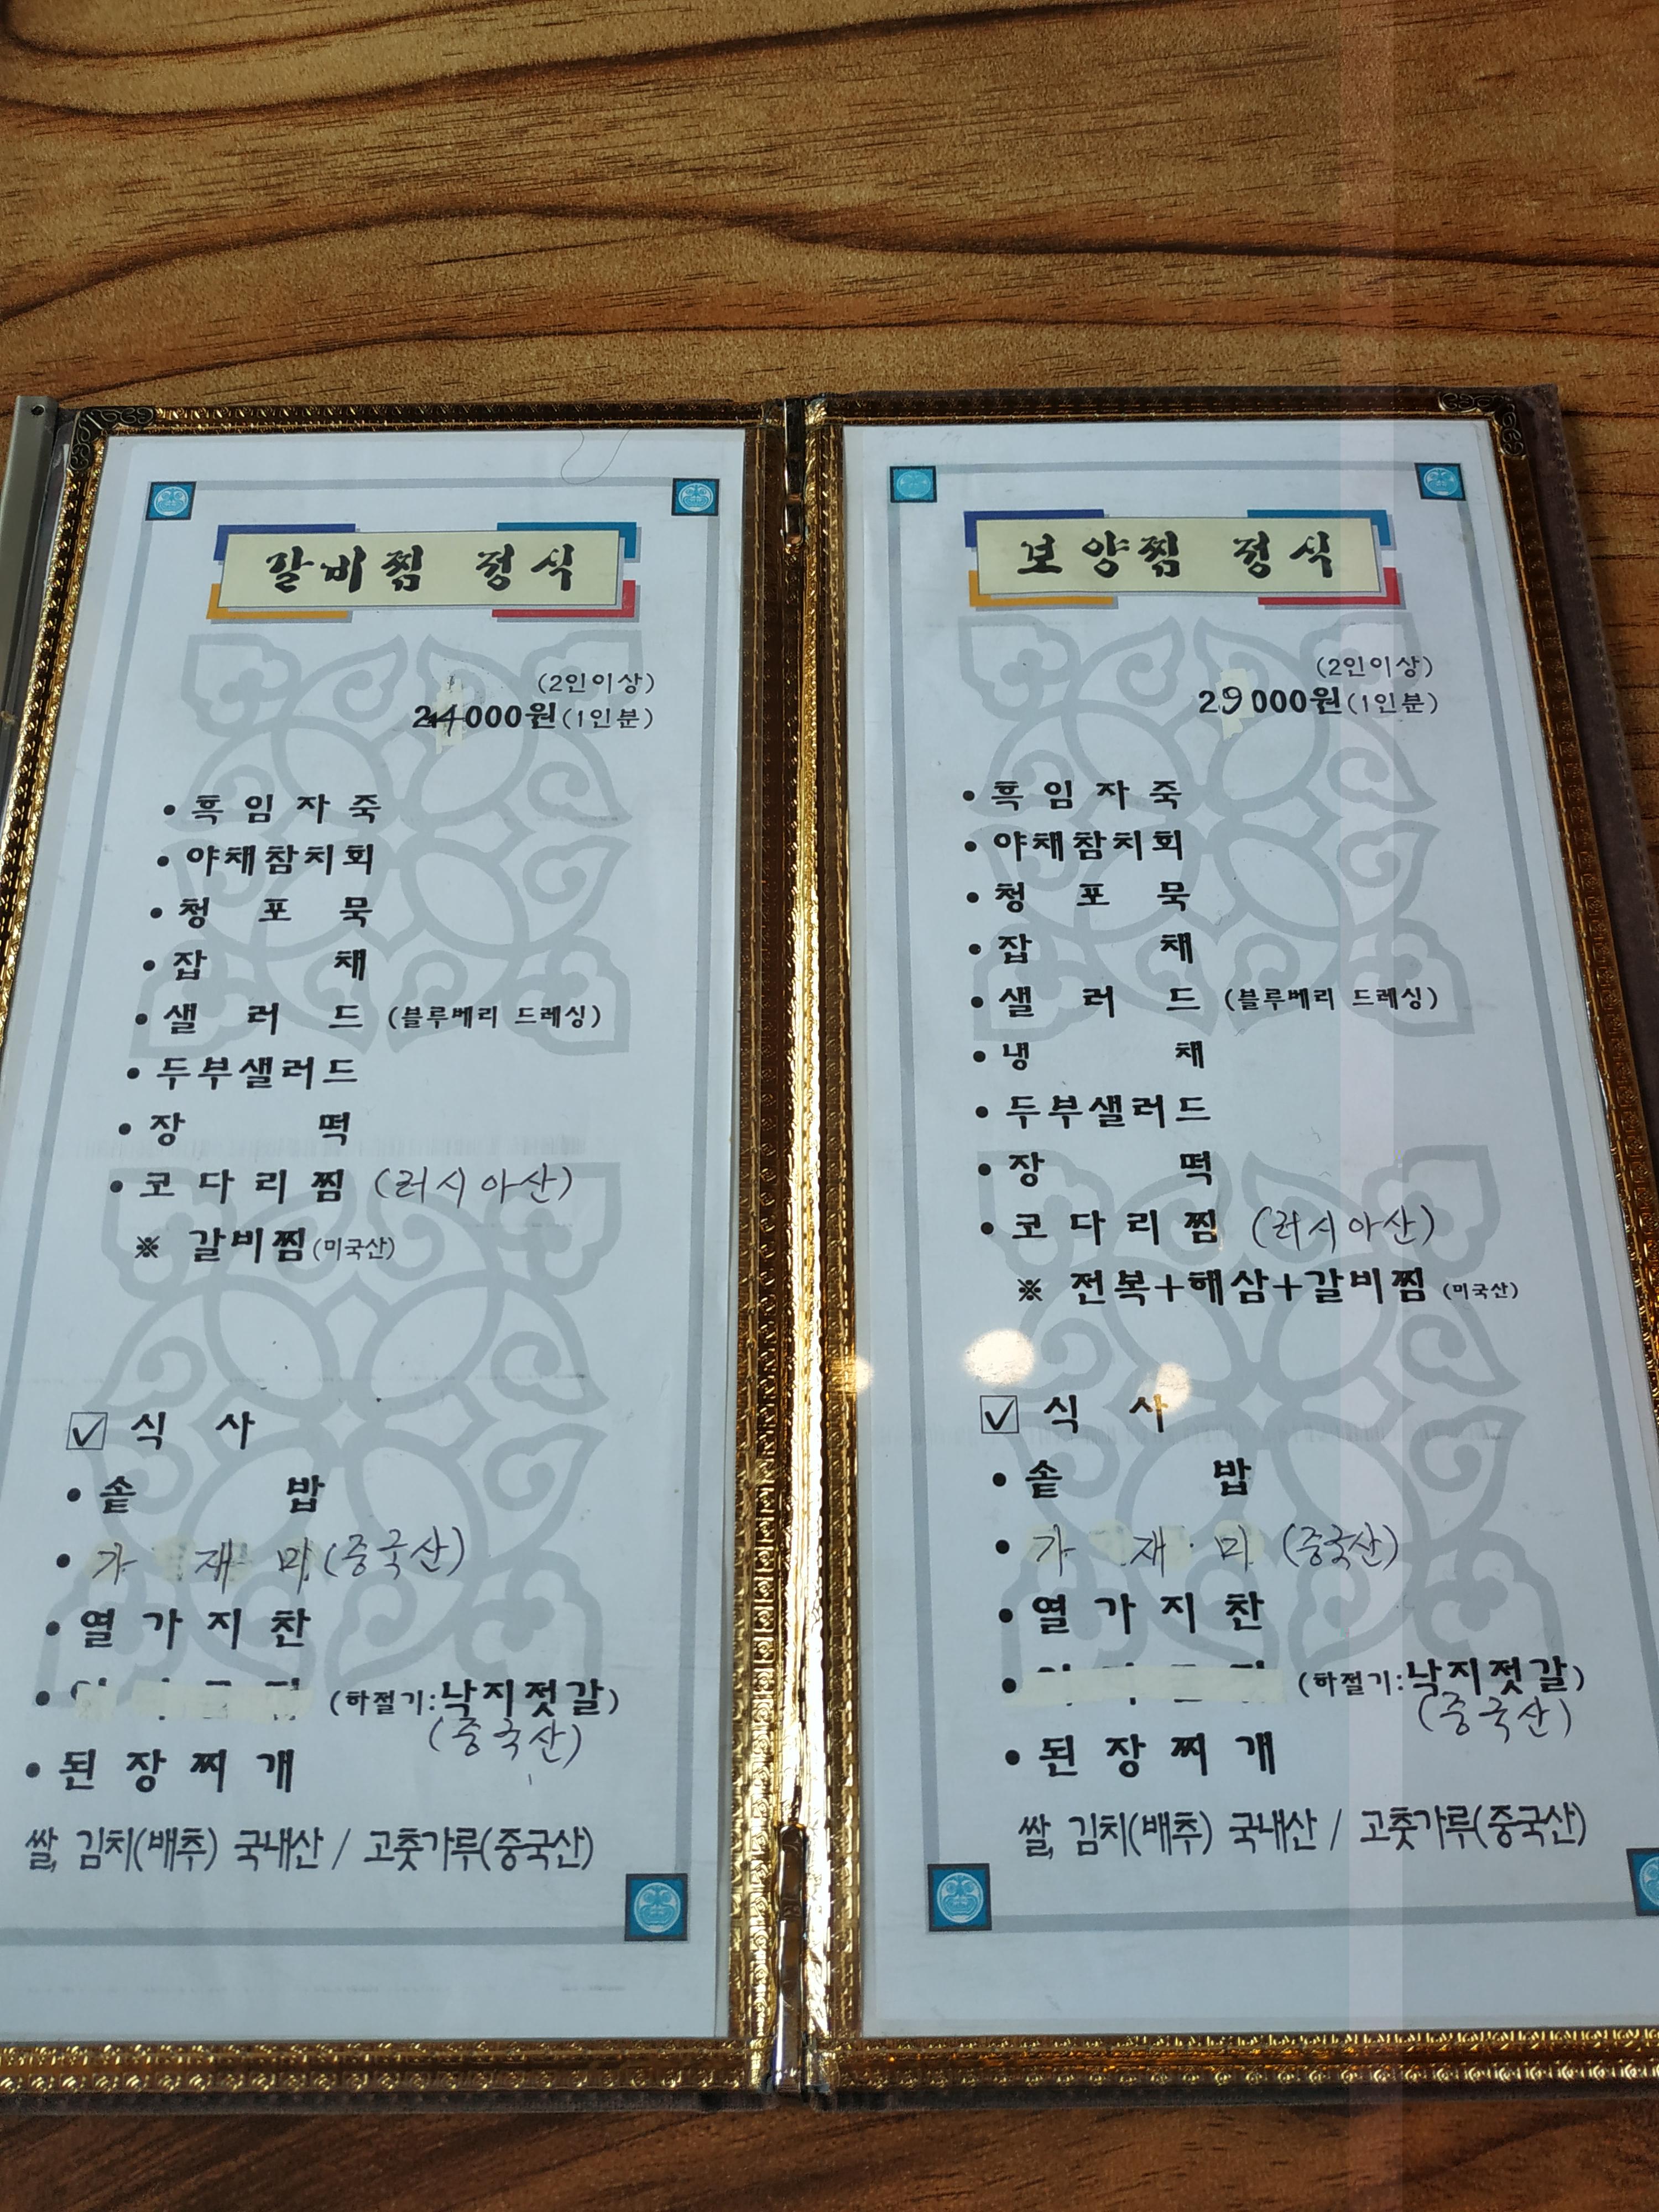 갈비찜 정식
(2인이상)
24000원(1인분)
• 흑임자죽
• 야채참치회
• 청포묵
• 잡채
• 샐러드 (블루베리 드레싱)
• 두부샐러드
• 장떡
• 코다리찜 (러시아산)
※ 갈비찜(미국산)
☑ 식사
• 솥밥
• 가재미(중국산)
• 열가지찬
• (하절기:낙지젓갈)
(중국산)
• 된장찌개
쌀, 김치(배추) 국내산 / 고춧가루(중국산)
보양찜 정식
(2인이상)
29000원(1인분)
• 흑임자죽
• 야채참치회
• 청포묵
• 잡채
• 샐러드 (블루베리 드레싱)
• 냉채
• 두부샐러드
• 장떡
• 코다리찜 (러시아산)
※ 전복+해삼+갈비찜 (미국산)
☑ 식사
• 솥밥
• 가재미 (중국산)
• 열가지찬
• (하절기:낙지젓갈)
(중국산)
• 된장찌개
쌀, 김치(배추) 국내산 / 고춧가루(중국산)